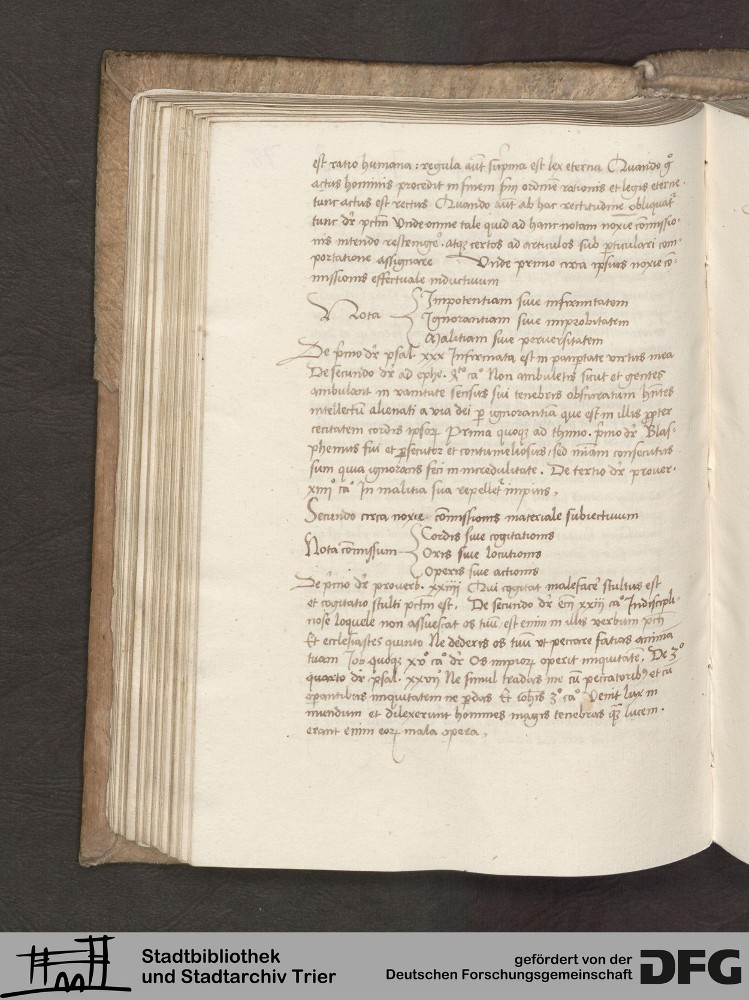 est ratio humana: regula aūt sup̄ma est lex eterna Quando g°
actus hominis procedit in finem scdm̄ ordinē rationis et legis eterne.
tunc actus est rectus Quando aūt ab hac rectitudine obliquat᷑
tunc dr̄ pctm̄ Unde omne tale quid ad hanc notam noxie cōmissio-
nis intendo atqꝫ certos ad articulos sub ꝑticulari com-
portatione assignare Unde primo circa ipsius noxie cō-
missionis effectuale inductiuum
Nota
Impotentiam siue infirmitatem
Ignorantiam siue improbitatem
Malitiam siue peruersitatem
De p̄mo dr̄ psal. xxx Infirmata est in paupt̄ate virtus mea
De secundo dr̄ ad ephe. 4to ca° Non ambuletis sicut et gentes
ambulant in vanitate sensus sui tenebris obscuratum hn̄tes
intellectū alienati a via dei ꝑ ignorantiā que est in illis ꝓpter
cecitatem cordis ipsoꝝ Prima quoqꝫ ad thimo. p̄mo dr̄ Blas-
phemus fui et ꝑsecutor et contumeliosus, sed mīam consecutus
sum quia ignorans feci in incredulitate. De tertio dr̄ prouer.
xiiii ca° In malitia sua repellet᷑ impius.
Secundo circa noxie cōmissionis materiale subiectiuum
Nota cōmissum
Cordis siue cogitationis
Oris siue locutionis
Operis siue actionis
De p̄mo dr̄ prouerb. xxiiii Qui cogitat malefacē stultus est
et cogitatio stulti pctm̄ est. De secundo dr̄ xxiii ca° Indiscipli-
nose loquele non assuescat os tuū est enim in illis verbum pcti
Et ecclesiastes quinto Ne dederis os tuū vt peccare facias anima
tuam Job quoqꝫ xv° ca° dr̄ Os impioꝝ operit iniquitatē. De 3°
quarto dr̄ psal. xxvii Ne simul tradas me cū peccatoribꝰ et cū
oꝑantibus iniquitatem ne ꝑdas Et Ioh̄is 3° ca° Venit lux in
mundum et dilexerunt homines magis tenebras qꝫ lucem.
erant enim eoꝝ mala opera.
Stadtbibliothek
und Stadtarchiv Trier
gefördert von der
Deutschen Forschungsgemeinschaft
DFG